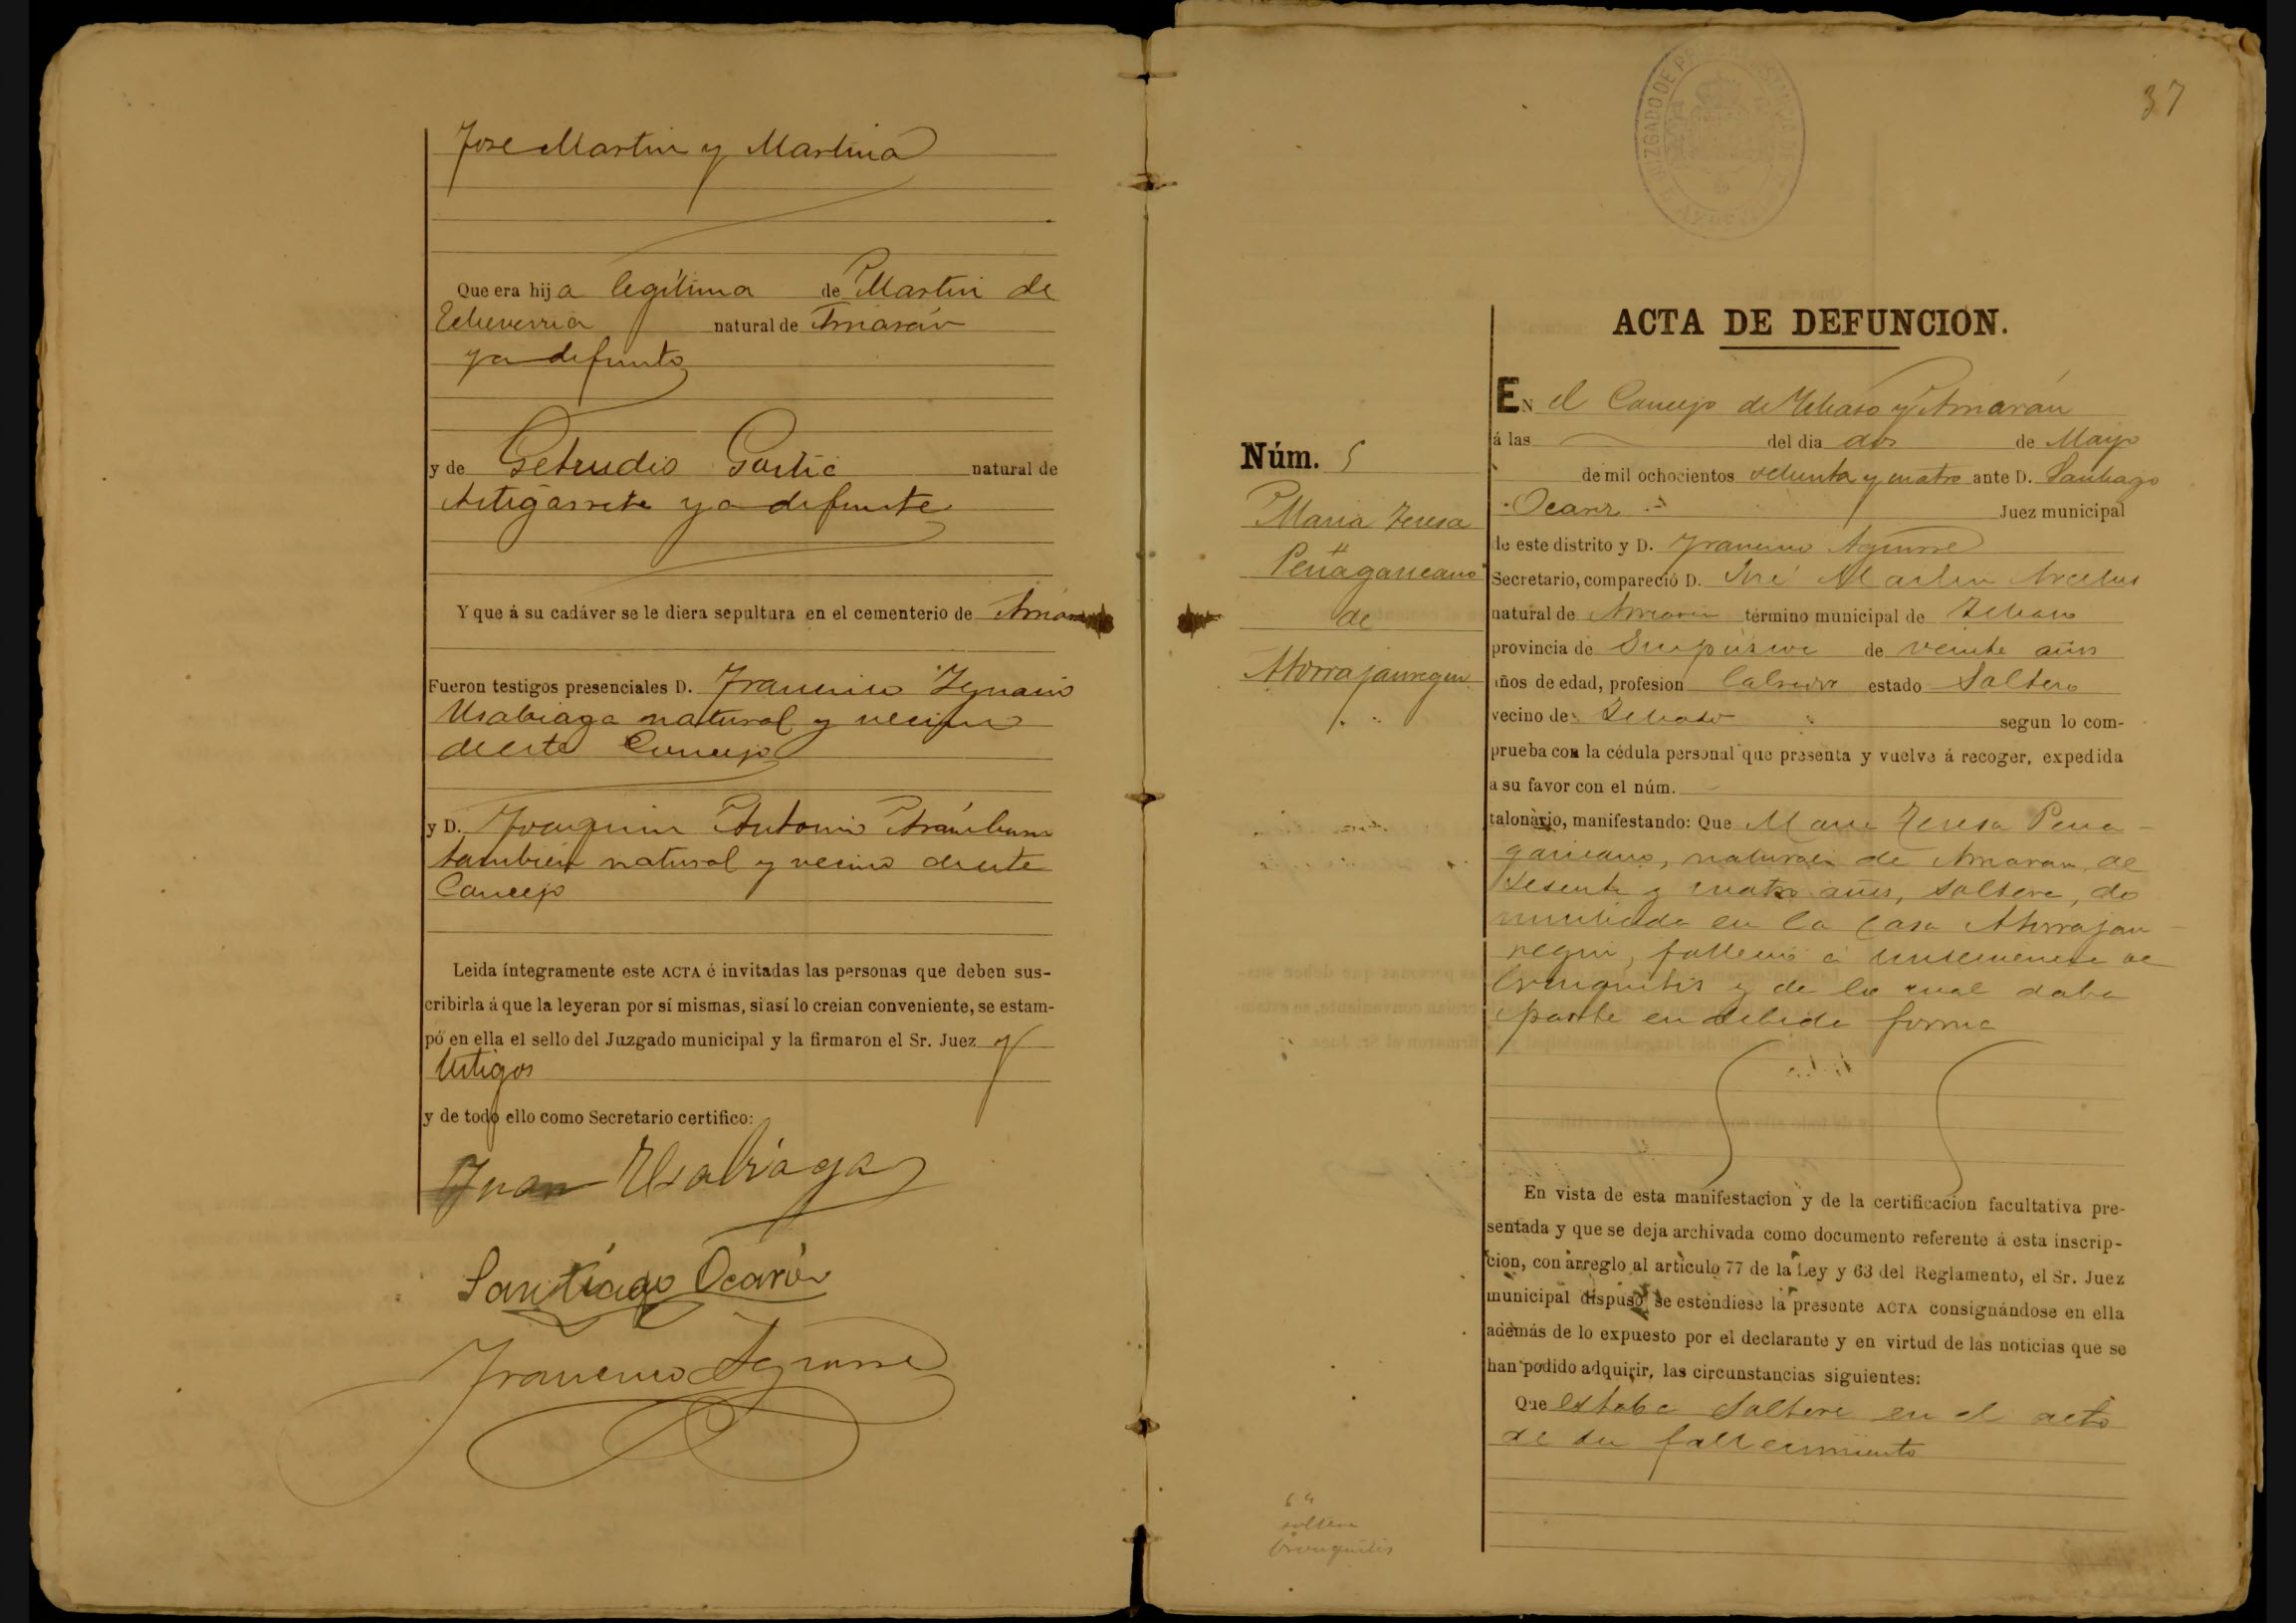 Jose Martin y Martina
Que era hija legitima de Martin de
Echeverria natural de Amarán
ya difunto
y de Getrudis Gastic natural de
Astigarreta ya difunta
Y que á su cadáver se le diera sepultura en el cementerio de Amar
Fueron testigos presenciales D. Francisco Ygnacio
Usabiaga natural y vecino
de este Concejo
y D. Joaquin Antonio Aramburu
también natural y vecino de este
Concejo
Leida íntegramente este ACTA é invitadas las personas que deben sus-
cribirla á que la leyeran por sí mismas, si así lo creian conveniente, se estam-
pó en ella el sello del Juzgado municipal y la firmaron el Sr. Juez y
testigos
y de todo ello como Secretario certifico:
Juan Usabiaga
Santiago Ocariz
Francisco Aguirre
37
JUZGADO DE
ACTA DE DEFUNCION.
EN el Concejo de y Amarán
á las del dia dos de Mayo
de mil ochocientos ochenta y cuatro ante D. Santiago
Ocariz Juez municipal
de este distrito y D. Francisco Aguirre
Secretario, compareció D. José Martin Arcelus
natural de Amarán término municipal de
provincia de Guipúzcoa de veinte años
años de edad, profesion labrador estado Soltero
vecino de segun lo com-
prueba con la cédula personal que presenta y vuelve á recoger, expedida
a su favor con el núm.
talonario, manifestando: Que Maria Teresa Pena
garicano, natural de Amaran, de
sesenta y cuatro años, soltera, do
miciliada en la casa Ahorrajau
regui, falleció á consecuencia de
bronquitis y de lo cual daba
parte en debida forma
Núm. 5
Maria Teresa
Peñagaricano
de
Ahorrajauregui
En vista de esta manifestacion y de la certificacion facultativa pre-
sentada y que se deja archivada como documento referente á esta inscrip-
cion, con arreglo al artículo 77 de la Ley y 63 del Reglamento, el Sr. Juez
municipal dispuso se estendiese la presente ACTA consignándose en ella
además de lo expuesto por el declarante y en virtud de las noticias que se
han podido adquirir, las circunstancias siguientes:
Que estaba soltera en el acto
de su fallecimiento
64
soltera
bronquitis